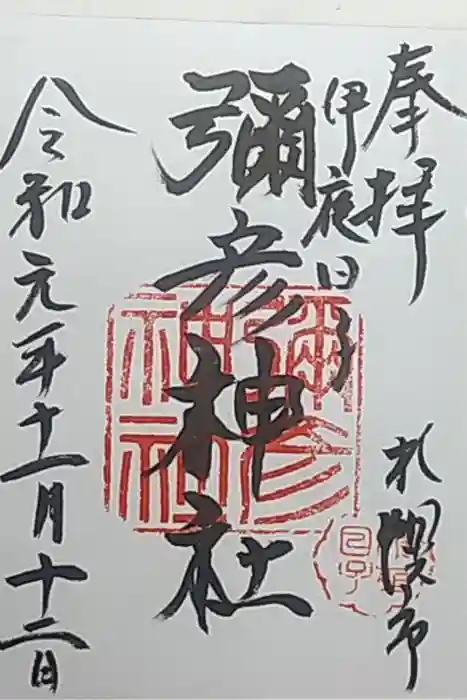 奉拝
札幌市
伊夜日子
彌彦神社
彌彦
神社
日子
令和元年十一月十二日